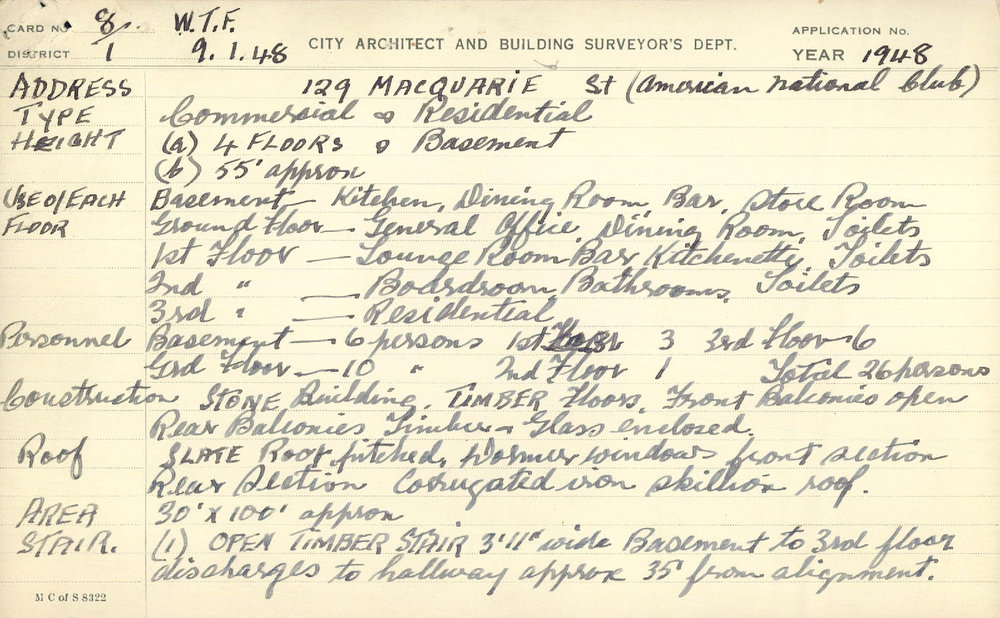 CARD NO 8/1 W.T.F. APPLICATION No.
DISTRICT 9.1.48 CITY ARCHITECT AND BUILDING SURVEYOR'S DEPT. YEAR 1948
ADDRESS 129 MACQUARIE St (American National Club)
TYPE Commercial & Residential
HEIGHT (a) 4 FLOORS & Basement
(b) 55' approx
USE of EACH Basement — Kitchen, Dining Room Bar, Store Room
FLOOR Ground Floor — General Office, Dining Room, Toilets
1st Floor — Lounge Room Bar Kitchenette, Toilets
2nd " — Boardroom, Bathrooms, Toilets
3rd " — Residential
Personnel Basement — 6 persons 1st Floor 3 3rd Floor 6
Grd Floor — 10 " 2nd Floor 1 Total 26 persons
Construction STONE Building, TIMBER Floors, Front Balconies open
Rear Balconies Timber & Glass enclosed.
Roof SLATE Roof pitched, Dormer windows front section
Rear Section Corrugated iron skillion roof.
AREA 30' x 100' approx
STAIR. (1) OPEN TIMBER STAIR 3'11" wide Basement to 3rd floor
discharges to hallway approx 35' from alignment.
M C of S 8322